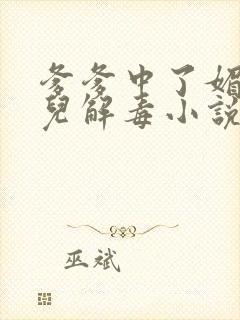 爹爹中了媚
兒解毒小說
巫斌